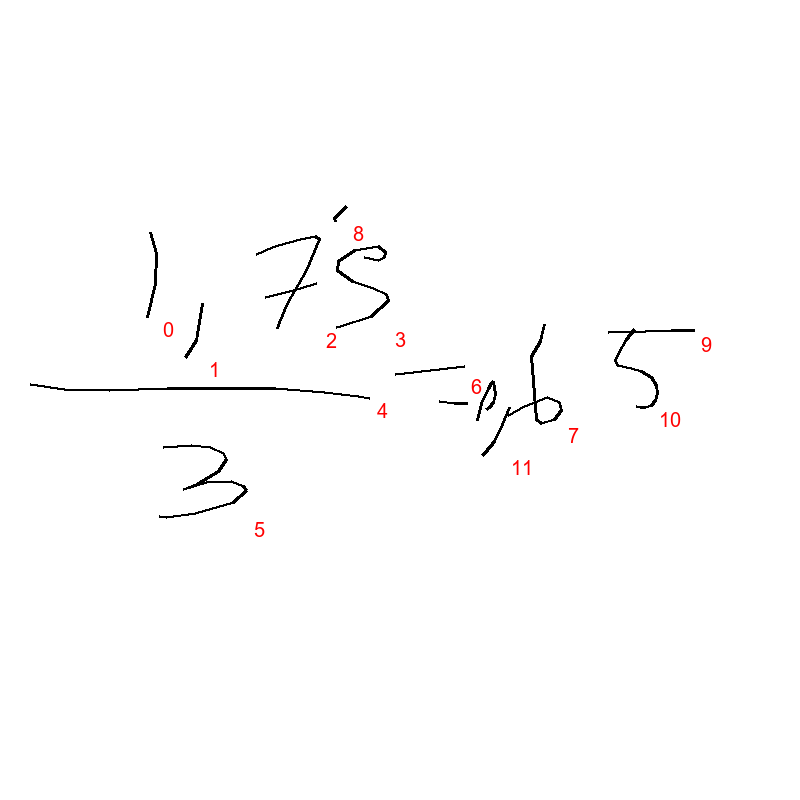 1,75
3
= 0,65
0
1
2
3
4
5
6
7
8
9
10
11